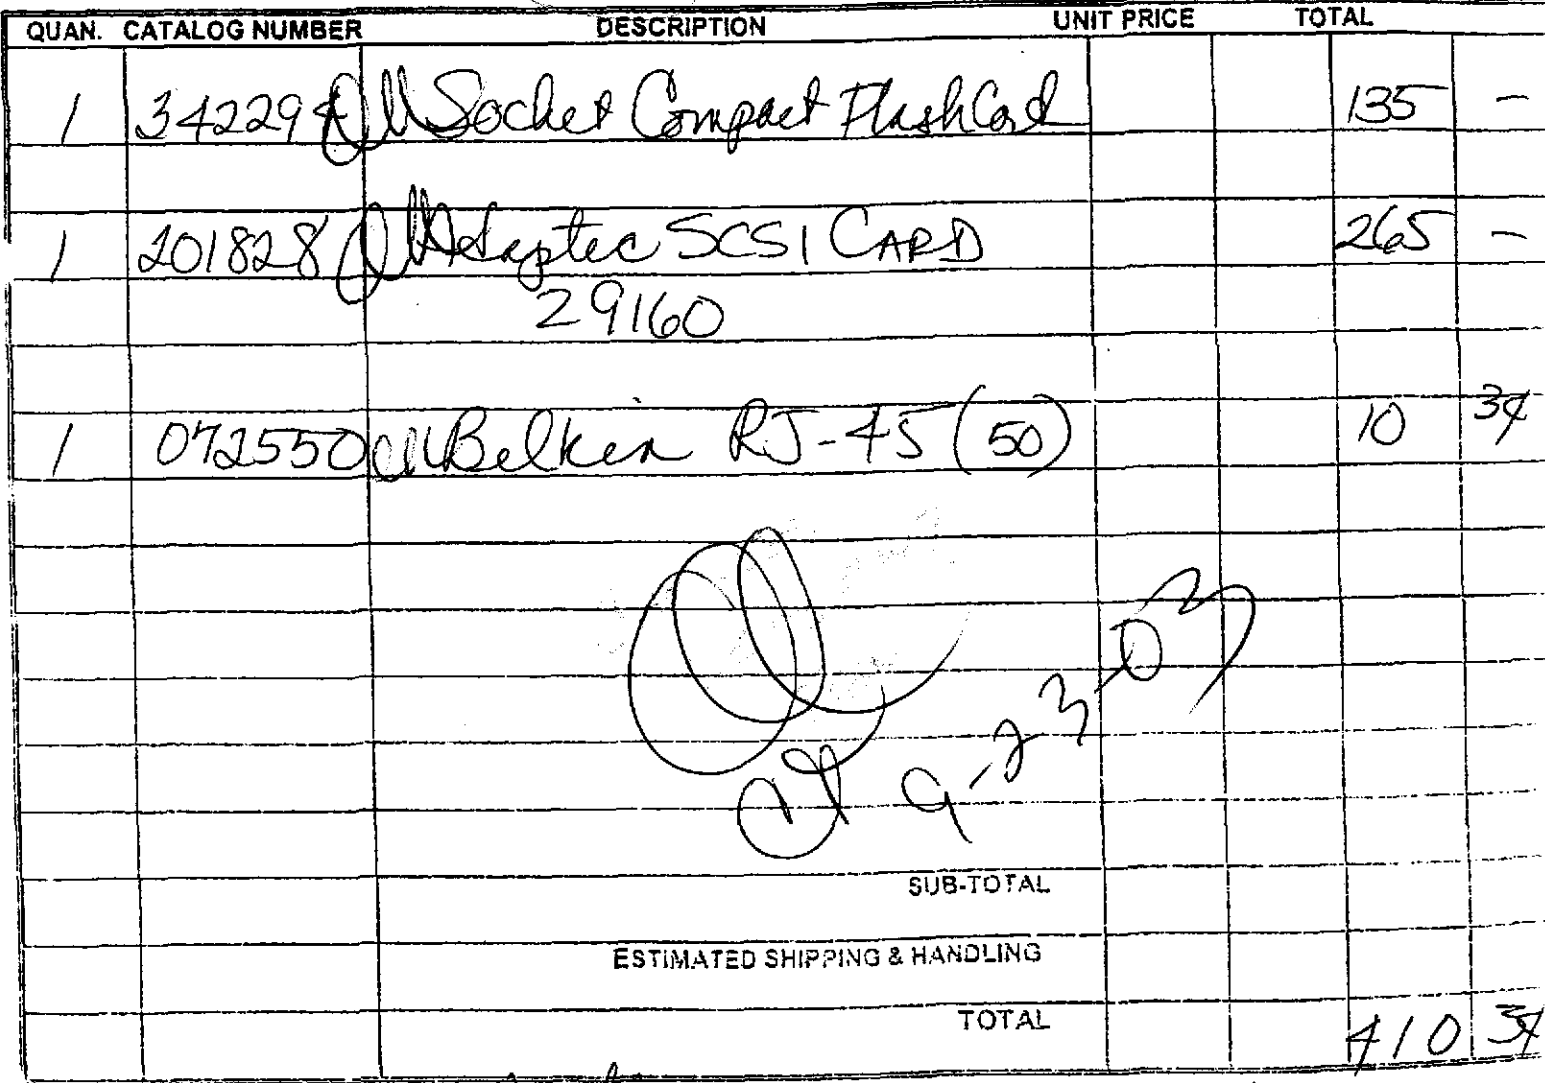 QUAN. CATALOG NUMBER DESCRIPTION UNIT PRICE TOTAL
1 342294 Socket Compact Flash Card 135 -
1 201828 Adaptec SCSI CARD 265 -
29160
1 072550 Belkin RJ-45 (50) 10 34
9-23-03
SUB-TOTAL
ESTIMATED SHIPPING & HANDLING
TOTAL 410 34